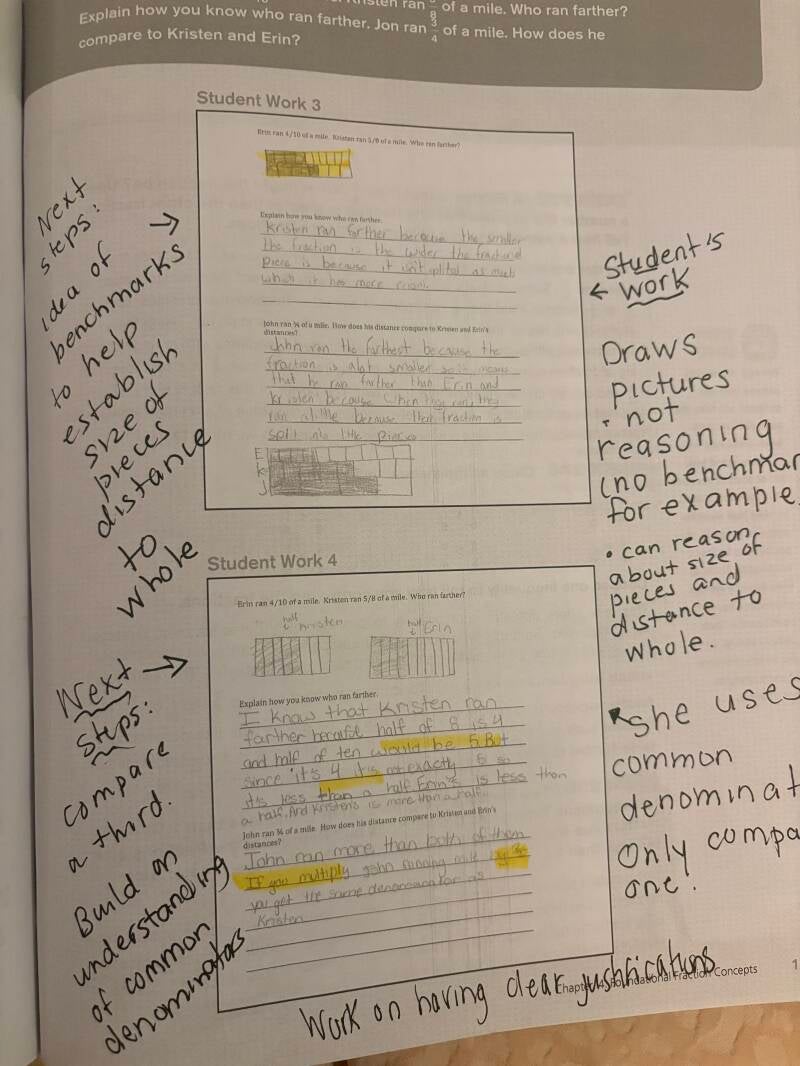 Kristen ran 5/8 of a mile. Who ran farther?
Explain how you know who ran farther. Jon ran 3/4 of a mile. How does he
compare to Kristen and Erin?
Student Work 3
Erin ran 4/10 of a mile. Kristen ran 5/8 of a mile. Who ran farther?
Explain how you know who ran farther.
Kristen ran farther because the smaller
the fraction is the wider the
piece is because it isn't splited as much
which it has more room.
John ran ¾ of a mile. How does his distance compare to Kristen and Erin's
distances?
John ran the farthest because the
fraction is alot smaller so it means
that he ran farther than Erin and
kristen because when they ran they
ran a little because their fraction is
split into little pieces
E
K
J
Next
steps:
idea of
benchmarks
to help
establish
size of
pieces
distance
to
whole
Student's
← work
Draws
pictures
• not
reasoning
(no benchmar
for example.
• can reason
about size of
pieces and
distance to
whole.
Student Work 4
Erin ran 4/10 of a mile. Kristen ran 5/8 of a mile. Who ran farther?
half Kristen
half Erin
Explain how you know who ran farther.
I know that Kristen ran
farther because half of 8 is 4
and half of ten would be 5 But
since it's 4 it's not exactly 5 so
it's less than a half. Erin's is less than
a half. And Kristen's is more than a half.
John ran ¾ of a mile. How does his distance compare to Kristen and Erin's
distances?
John ran more than both of them
If you multiply john running mile by
you get the same denominator as
Kristen
Next
Steps:
compare
a third.
Build on
understanding
of common
denominators
she uses
common
denominat
Only compa
one.
Work on having clear justifications
Chapter 4 Foundational Fraction Concepts
1